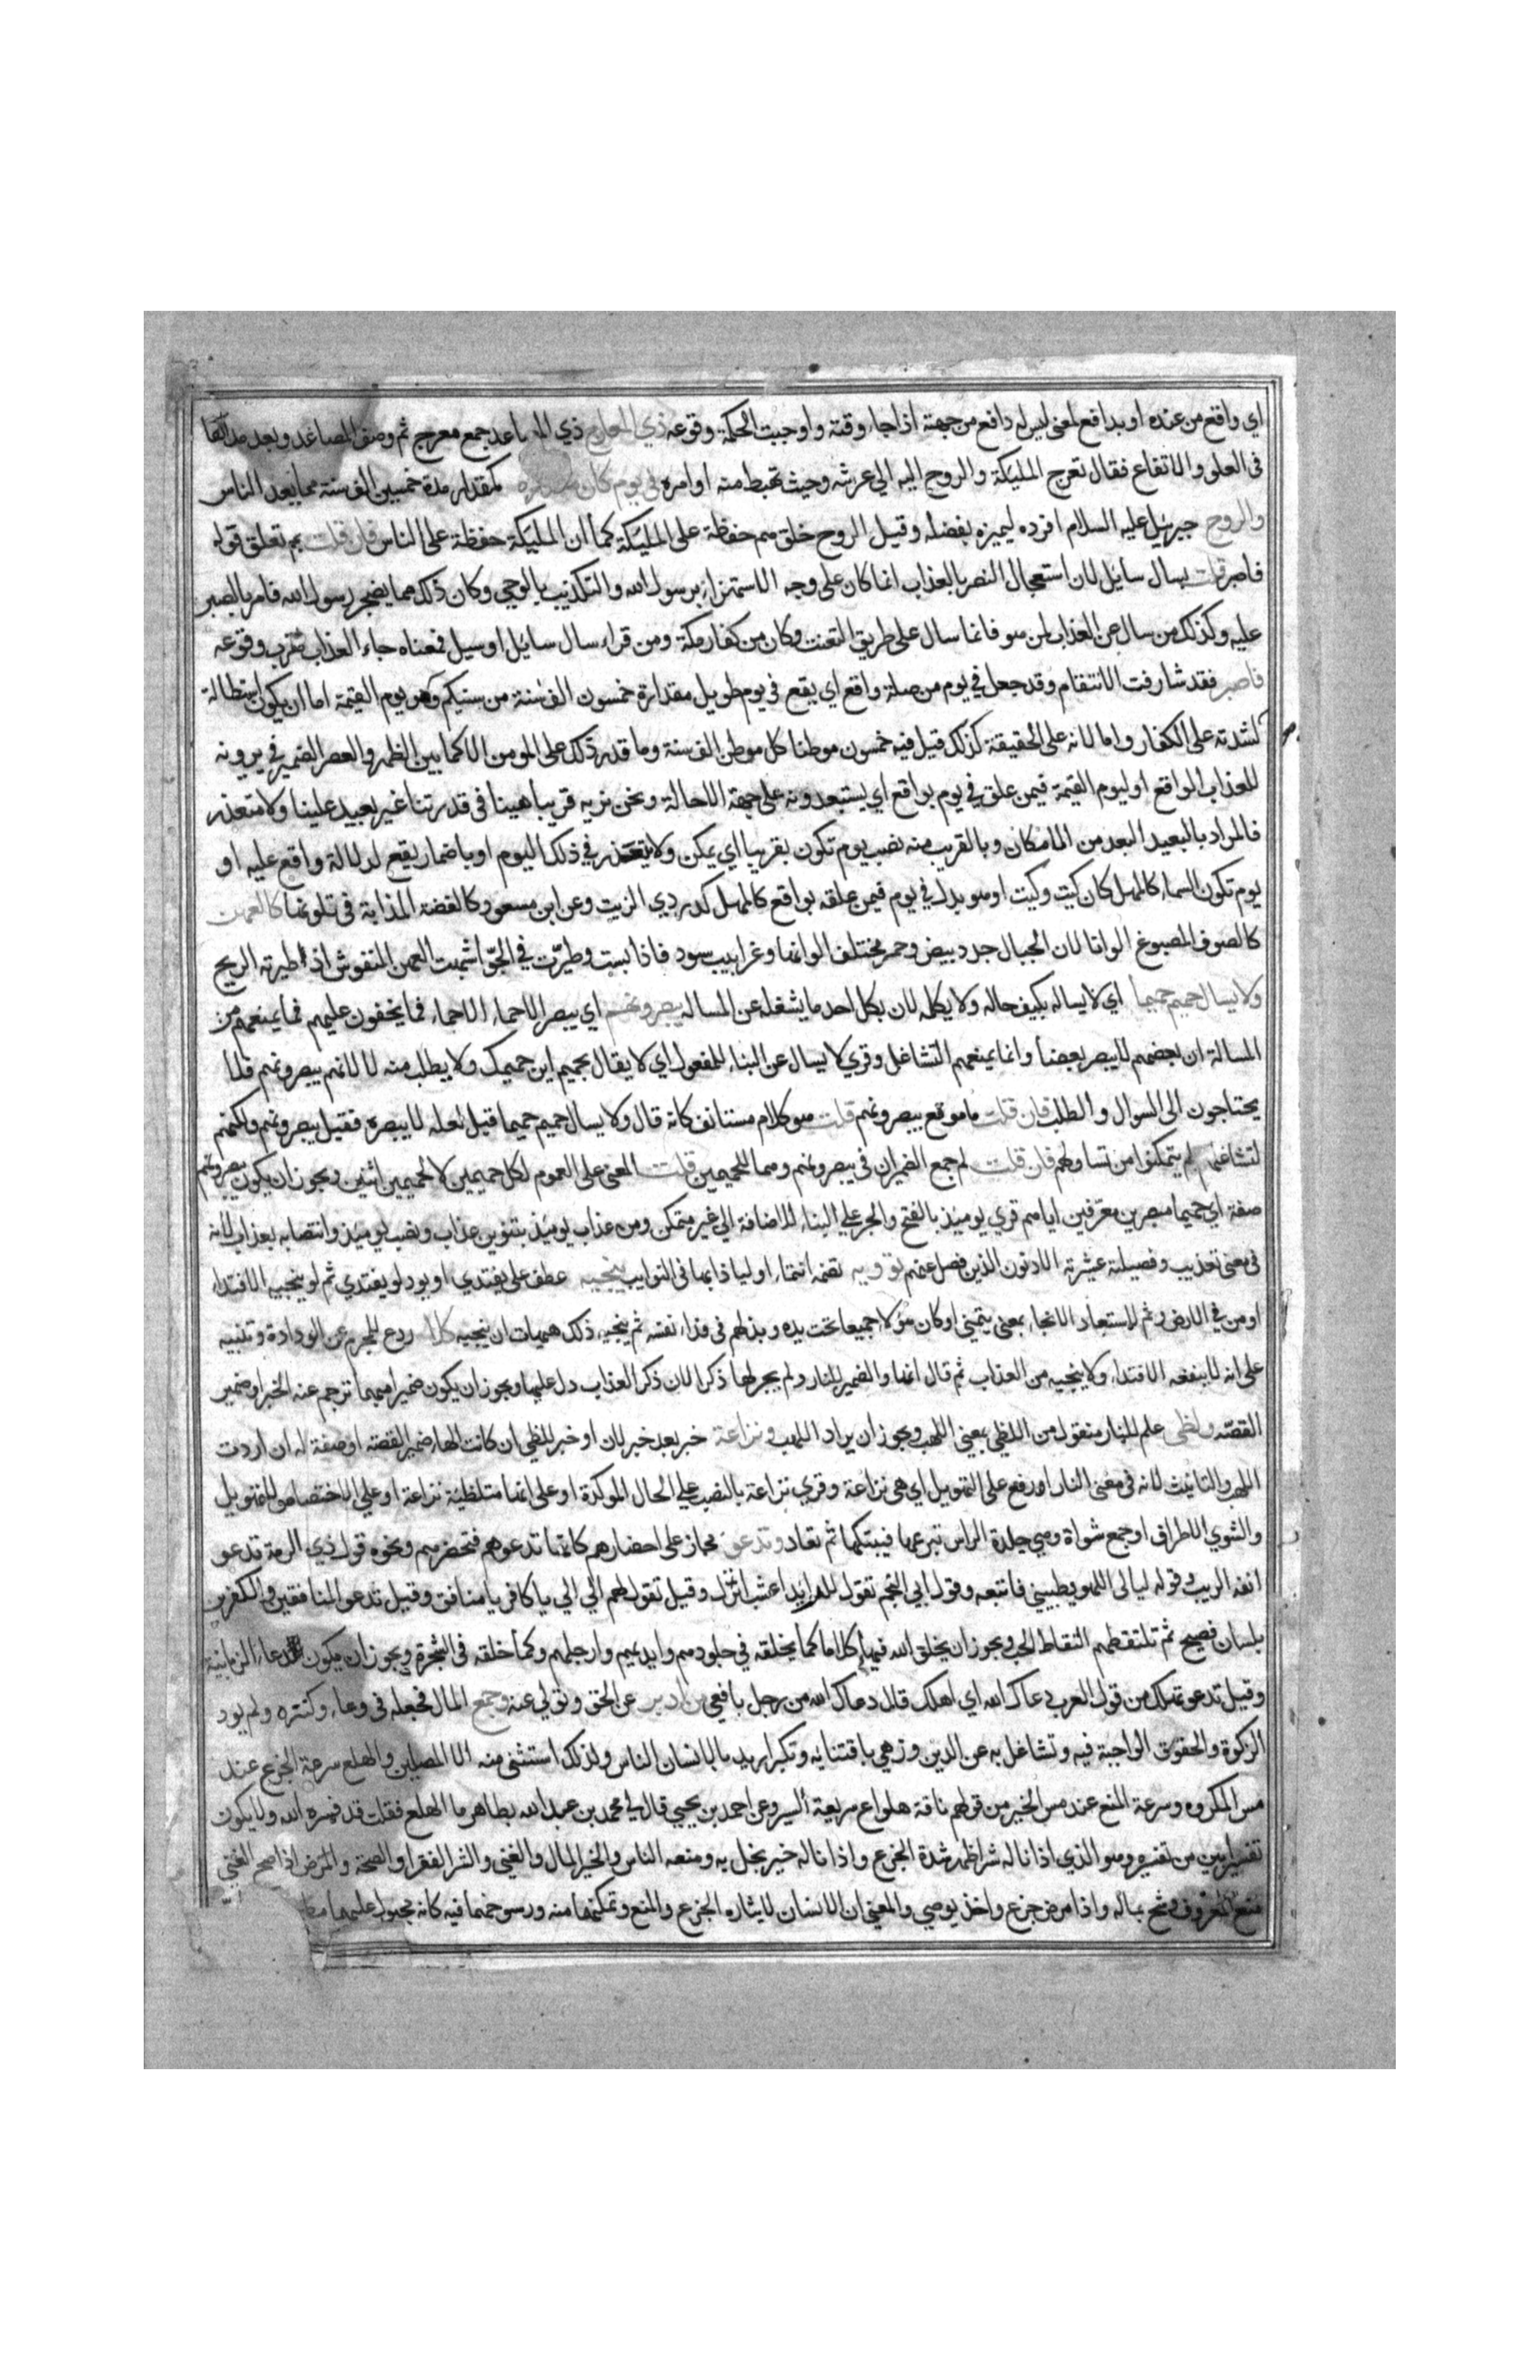 اي واقع من عنده او بدافع لمعنى ليس له دافع من جهته اذا جاء وقته واوجبت الحكمة وقوعه ذي المعارج ذي المصاعد جمع معرج ثم وصف المصاعد وبعد مداها
فى العلو والاتفاع فقال تعرج المليكة والروح اليه الي عرشه وحيث تهبط منه اوامره في يوم كان مقداره كمقدار مدة خمسين الف سنة مما يعد الناس
والروح جبريل عليه السلام افرده ليميزه بفضله وقيل الروح خلق هم حفظة على المليكة كما ان المليكة حفظة على الناس فان قلت بم تعلق قوله
فاصبر قلت بسال سائل لان استعجال النصر بالعذاب انما كان على وجه الاستهزاء برسول الله والتكذيب بالوحي وكان ذلك مما يضجر رسول الله فامر بالصبر
عليه وكذلك من سال عن العذاب لمن هو فانما سال على طريق التعنت وكان من كفار مكة ومن قراء سال سايل او سيل فمعناه جاء العذاب لقرب وقوعه
فاصبر فقد شارفت الانتقام وقد جعل في يوم من صلة واقع اي يقع في يوم طويل مقداره خمسون الف سنة من سنيكم وهو يوم القيمة اما ان يكون استطالة
لشدته على الكفار واما لانه على الحقيقة كذلك قيل فيه خمسون موطنا كل موطن الف سنة وما قدر ذلك على المومن الا كما بين الظهر والعصر الضمير في يرونه
للعذاب الواقع او ليوم القيمة فيمن علق في يوم بواقع اي يستبعدونه على جهة الاحالة ونحن نريه قريبا هينا فى قدرتنا غير بعيد علينا ولا متعذر
فالمراد بالبعيد البعد من الامكان وبالقريب منه نصب يوم تكون بقريبا اي يمكن ولا يتعذر في ذلك اليوم او باضمار يقع لدلالة واقع عليه او
يوم تكون السماء كالمهل كان كيت وكيت او هو بدل في يوم فيمن علقه بواقع كالمهل كدردي الزيت وعن ابن مسعود كالفضة المذابة فى تلونها كالعهن
كالصوف المصبوغ الوانا لان الجبال جدد بيض وحمر مختلف الوانها وغرابيب سود فاذا بست وطيرت في الجو اشبهت العهن المنفوش اذ اطيرته الريح
ولا يسال حميم حميما اي لا يساله بكيف حاله ولا يكلمه لان بكل احد ما يشغله عن المسالة يبصرونهم اي يبصر الاحماء الاحماء فما يخفون عليهم فما يمنعهم من
المسالة ان بعضهم لا يبصر بعضا وانما يمنعهم التشاغل وقري لا يسال عن البناء للمفعول اي لا يقال بحميم اين حميمك ولا يطلب منه لا لانهم يبصرونهم فلا
يحتاجون الى السوال والطلب فان قلت ما موقع يبصرونهم قلت هو كلام مستانف كانه قال ولا يسال حميم حميما قيل لعله لا يبصره فقيل يبصرونهم ولكنهم
لتشاغلهم لم يتمكنوا من تساولهم فان قلت لم جمع الضميران في يبصرونهم وهما للحميمين قلت المعنى على العموم لكل حميمين لا لحميمين اثنين ويجوز ان يكون يبصرونهم
صفة اي حميما مبصرين معرفين اياهم قري يوميذ بالفتح والجر علي البناء للاضافة الي غير متمكن ومن عذاب يوميذ بتنوين عذاب ونصب يوميذ وانتصابه بعذاب لانه
فى معنى تعذيب وفصيلته عشيرته الادنون الذين فصل عنهم توويه تضمه انتماء او لياذا بها فى النوايب ينجيه عطف على يفتدي اي يود لو يفتدي ثم لو ينجيه الافتداء
او من في الارض وثم لاستبعاد الانجاء بمعنى يتمنى او كان هؤلاء جميعا تحت يده وبذلهم فى فداء نفسه ثم ينجيه ذلك هيهات ان ينجيه كلا ردع للمجرم عن الودادة وتنبيه
على انه لا ينفعه الافتداء ولا ينجيه من العذاب ثم قال انها والضمير للنار ولم يجر لها ذكر الا ان ذكر العذاب دل عليها ويجوز ان يكون ضميرا مبهما ترجم عنه الخبر او ضمير
القصة ولظى علم للنار منقول من اللظى بمعني اللهب ويجوز ان يراد اللهب ونزاعة خبر بعد خبر لان او خبر للظي ان كانت الهاء ضمير القصة او صفة له ان اردت
اللهب والتانيث لانه فى معنى النار او رفع على التهويل اي هي نزاعة وقري نزاعة بالنصب علي الحال الموكدة او على انها متلظية نزاعة او على الاختصاص للتهويل
والشوي الاطراف او جمع شواة وهي جلدة الراس تنزعها فتبتكها ثم تعاد وتدعو مجاز على احضارهم كانها تدعوهم فتحضرهم ونحوه قول ذي الرمة تدعو
انفه الريب وقوله ليالى اللهو يطبيني فاتبعه وقول ابي النجم تقول للرايد اعشبت انزل وقيل تقول لهم الي الي يا كافر يا منافق وقيل تدعو المنافقين والكفرين
بلسان فصيح ثم تلتقطهم التقاط الحب ويجوز ان يخلق الله فيها كلاما كما يخلقه في جلودهم وايديهم وارجلهم وكما خلقه فى الشجرة ويجوز ان يكون دعاء الزبانية
وقيل تدعو تهلك من قول العرب دعاك الله اي اهلك قال دعاك الله من رجل بافعي من ادبر عن الحق وتولي عنه وجمع المال فجعله فى وعاء وكنزه ولم يود
الزكوة والحقوق الواجبة فيه وتشاغل به عن الدين وزهي باقتنايه وتكبر اريد بالانسان الناس ولذلك استثنى منه الا المصلين والهلع سرعة الجزع عند
مس المكروه وسرعة المنع عند مس الخير من قولهم ناقة هلواع سريعة السير وعن احمد بن يحيي قال لي محمد بن عبد الله بن طاهر ما الهلع فقلت قد فسره الله ولا يكون
تفسير ابين من تفسيره وهو الذي اذا ناله شر اظهر شدة الجزع واذا ناله خير بخل به ومنعه الناس والخير المال والغني والشر الفقر او الصحة والمرض اذا صح الغني
منع المعروف وشح بماله واذا مرض جزع واخذ يوصي والمعني ان الانسان لايثاره الجزع والمنع وتمكنهما منه ورسوخهما فيه كانه مجبول عليهما